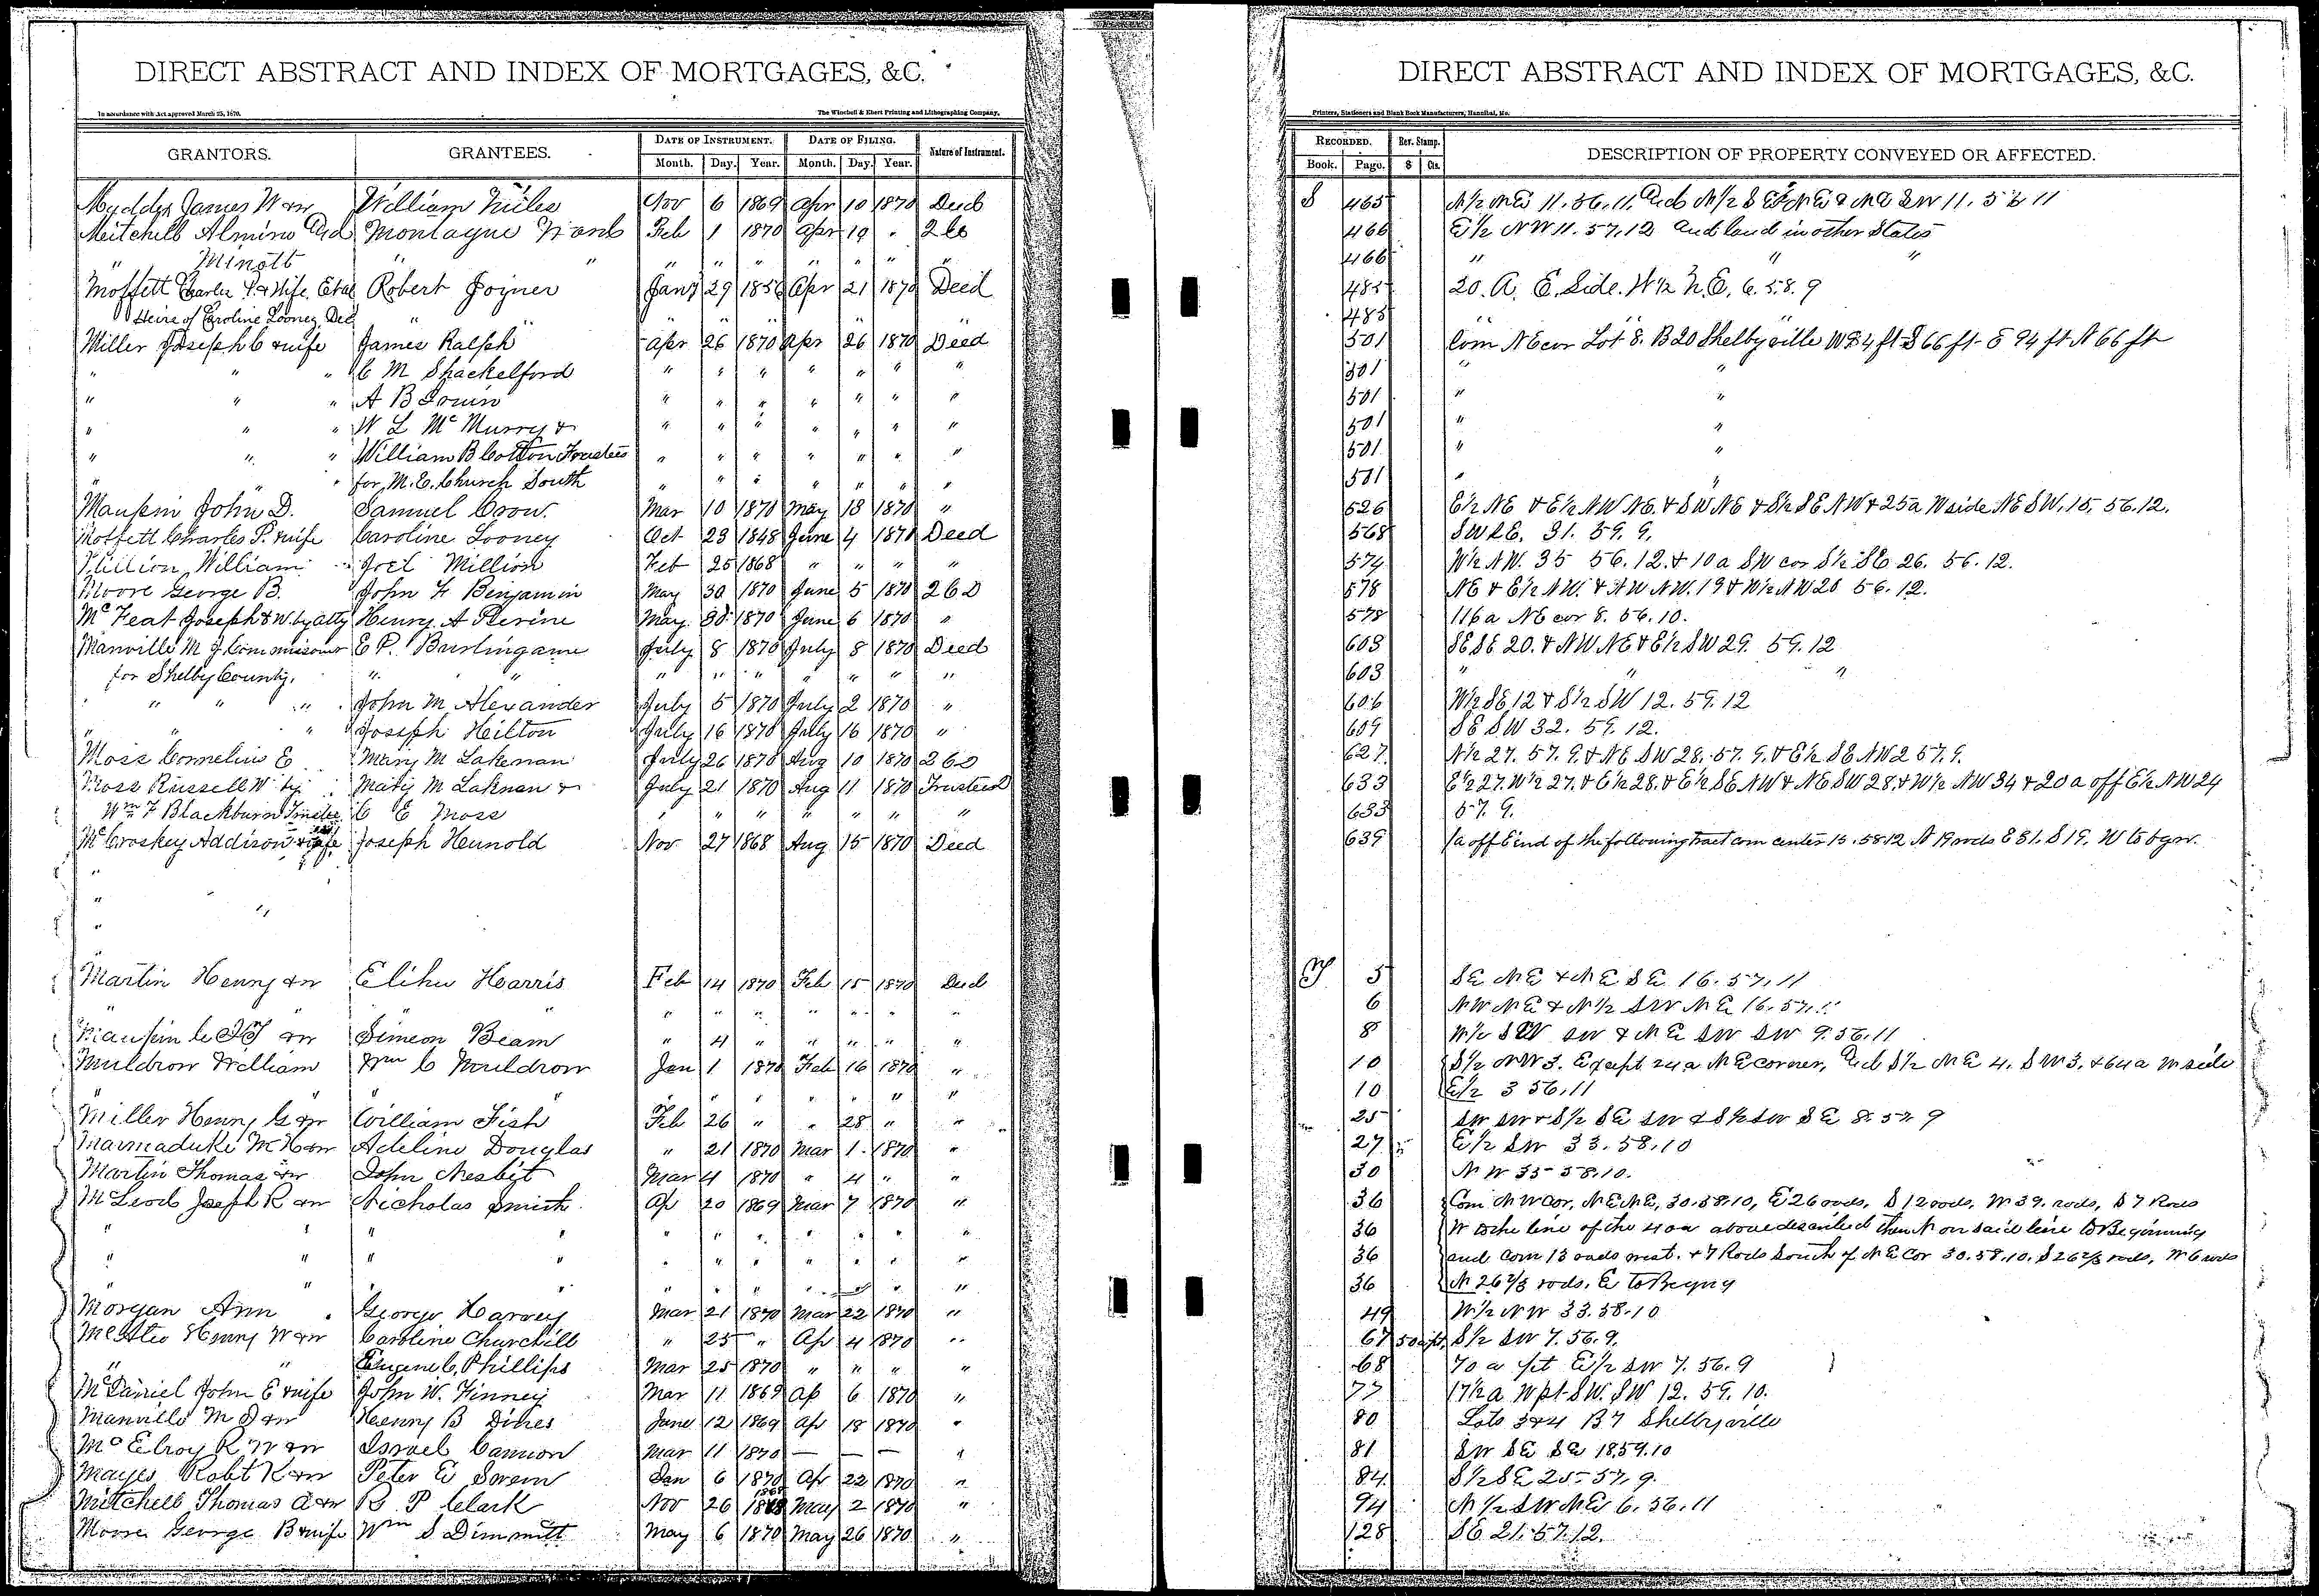 DIRECT ABSTRACT AND INDEX OF MORTGAGES, &C.
In accordance with Act approved March 25, 1870.
The Winchell & Ebert Printing and Lithographing Company,
GRANTORS. GRANTEES. DATE OF INSTRUMENT. DATE OF FILING. Nature of Instrument.
Month. Day. Year. Month. Day. Year.
James W & w William Nov 6 1869 Apr 10 1870 Deed
Mitchell Montague Feb 1 1870 Apr 19 "
Minott " " " " " " " " "
Moffett Charles P. & Wife, Etal Robert Joyner Jany 29 1856 Apr 21 1870 Deed
Heirs of Caroline Looney Dec " " " " " " " "
Miller Joseph C & wife James Ralph Apr 26 1870 Apr 26 1870 Deed
" " " C M Shackelford " " " " " " "
" " " A B " " " " " " "
" " " W L McMurry & " " " " " " "
" " " William B Cotton Trustees " " " " " " "
" " " for M. E. Church South " " " " " " "
Maupin John D. Samuel Crow. Mar 10 1870 May 18 1870 "
Moffett Charles P. & wife Caroline Looney Oct 23 1848 June 4 1870 Deed
Million William Joel Million Feb 25 1868 " " " "
Moore George B. John F Benjamin May 30 1870 June 5 1870
Joseph & W. by atty Henry A May 30 1870 June 6 1870 "
Manville M J Commissioner E P. Burlingame July 8 1870 July 8 1870 Deed
for Shelby County. " " " " " " " " "
" " " John M Alexander July 5 1870 July 2 1870 "
" " Joseph Hilton July 16 1870 July 16 1870 "
Moss Cornelius E Mary M Lakenan July 26 1870 Aug 10 1870
Moss Russell W by Mary M Laknan & July 21 1870 Aug 11 1870 Trustees D
Wm F Blackburn Trustee C E Moss " " " " " " "
McCroskey Addison & wife Joseph Hunold Nov 27 1868 Aug 15 1870 Deed
"
" "
"
"
Martin Henry & w Elihu Harris Feb 14 1870 Feb 15 1870 Deed
" " " " " " " "
Maupin & w Simeon Beam " 4 " " " " "
Muldrow William Wm C Muldrow Jan 1 1870 Feb 16 1870 "
" " " " " " " " "
Miller Henry G & w William Fish Feb 26 " " 28 " "
Marmaduke M H & w Adeline Douglas " 21 1870 Mar 1 1870 "
Martin Thomas & w John Nesbit Mar 4 1870 " 4 " "
McLeod Joseph R & w Nicholas Smith Ap 20 1869 Mar 7 1870 "
" " " " " " " " " " "
" " " " " " " " " " "
" " " " " " " " " " "
Morgan Ann George Harvey Mar 21 1870 Mar 22 1870 "
Henry W & w Caroline Churchill " 25 " Ap 4 1870 "
" " Eugene C. Phillips Mar 25 1870 " " " "
McDaniel John E & wife John W. Finney Mar 11 1869 Ap 6 1870 "
Manville M J & w Henry B Dines June 12 1869 Ap 18 1870 "
McElroy R W & w Israel Cannon Mar 11 1870 — — — "
Mayes Robt K & w Peter E Jan 6 1870 Ap 22 1870 "
Mitchell Thomas A & w R. P Clark Nov 26 1868 May 2 1870 "
Moore George B & wife Wm S Dimmitt May 6 1870 May 26 1870 "
DIRECT ABSTRACT AND INDEX OF MORTGAGES, &C.
Printers, Stationers and Blank Book Manufacturers, Hannibal, Mo.
RECORDED. Rev. Stamp. DESCRIPTION OF PROPERTY CONVEYED OR AFFECTED.
Book. Page. $ Cts.
S 465 N½ NE 11. 56. 11, And N½ SE & NE SW 11. 56 11
466 E½ NW 11. 57. 12 And land in other States
466 " " "
485 20. A. E. Side. W½ N. E. 6. 58. 9
485 " "
501 Com NE cor Lot 8. B 20 Shelbyville W 94 ft S 66 ft E 94 ft N 66 ft
501 " "
501 " "
501 " "
501 " "
501 " "
526 E½ NE & E½ NW NE. & SW NE & S½ SE NW & 25a W side NE SW. 15. 56. 12.
568 SW SE. 31. 59. 9.
574 W½ NW. 35 56. 12. & 10a SW cor S½ SE 26. 56. 12.
578 NE & E½ NW. & NW NW. 19 & W½ NW 20 56. 12.
578 116a NE cor 8. 56. 10.
603 SE SE 20. & NW NE & E½ SW 29. 59. 12
603 " " "
606 W½ SE 12 & S½ SW 12. 59. 12
609 SE SW 32. 59. 12.
627 N½ 27. 57. 9. & NE SW 28. 57. 9. & E½ SE NW 2 57. 9.
633 E½ 27. W½ 27. & E½ 28. & E½ SE NW & NE SW 28. & W½ NW 34 & 20a off E½ NW 24
633 57. 9.
639 1a off E end of the following tract com center 15. 58. 12 N 19 rods E 51. S 19. W to bgn.
T 5 SE NE & NE SE 16. 57. 11
6 NW NE & N½ SW NE 16. 57. "
8 W½ SW SW & NE SW SW 9. 56. 11
10 S½ NW 3. Except 24a NE corner, And S½ NE 4. SW 3. & 64a W side
10 E½ 3 56. 11
25 SW SW & S½ SE SW & S½ SW SE 8. 57. 9
27 E½ SW 33. 58. 10
30 NW 35 58. 10.
36 Com NW Cor, NE NE, 30. 58. 10, E 26 rods, S 12 rods, W 39. rods, S 7 Rods
36 W to the line of the 40a above described then N on said line to Beginning
36 and Com 13 rods west. & 7 Rods South of NE Cor 30. 58. 10. S 26⅔ rods, W 6 rods
36 N 26⅔ rods, E to Begng
49 W½ NW 33. 58. 10
67 50 a pt S½ SW 7. 56. 9.
68 70 a pt E½ SW 7. 56. 9
77 17½ a W pt SW. SW 12. 59. 10.
80 Lots 3 & 4 B 7 Shelbyville
81 SW SE SE 18. 59. 10
84 S½ SE 25 57. 9.
94 N½ SW NE 6. 56. 11
128 SE 21. 57. 12.